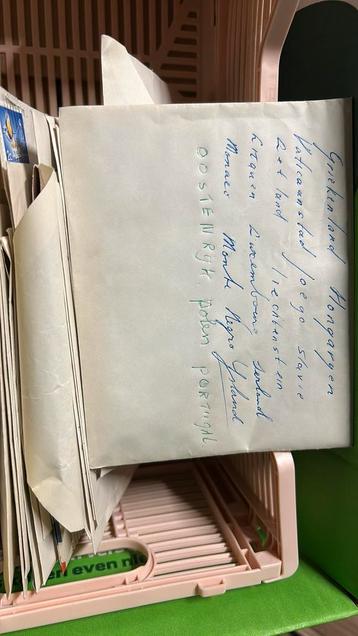 Griekenland Hongaryen
Vaticaanstad Joego Slavie
Letland liechenstein
Luxemburg Ierland
Monaco Monte Negro Ysland
OOSTENRIJK polen PORTUGAL
even